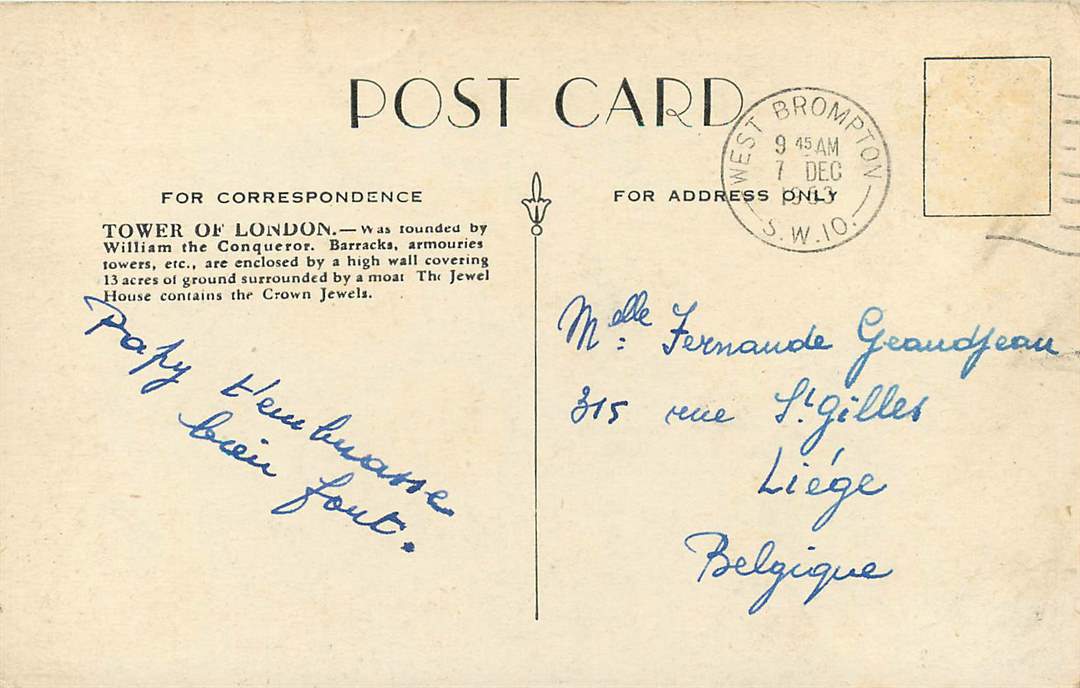 POST CARD
WEST BROMPTON
9 45 AM
7 DEC
S.W.10.
FOR CORRESPONDENCE
FOR ADDRESS ONLY
TOWER OF LONDON.— Was founded by
William the Conqueror. Barracks, armouries
towers, etc., are enclosed by a high wall covering
13 acres of ground surrounded by a moat The Jewel
House contains the Crown Jewels.
Papy t'embrasse
bien fort.
Melle: Fernande Grandjean
315 rue St. Gilles
Liége
Belgique